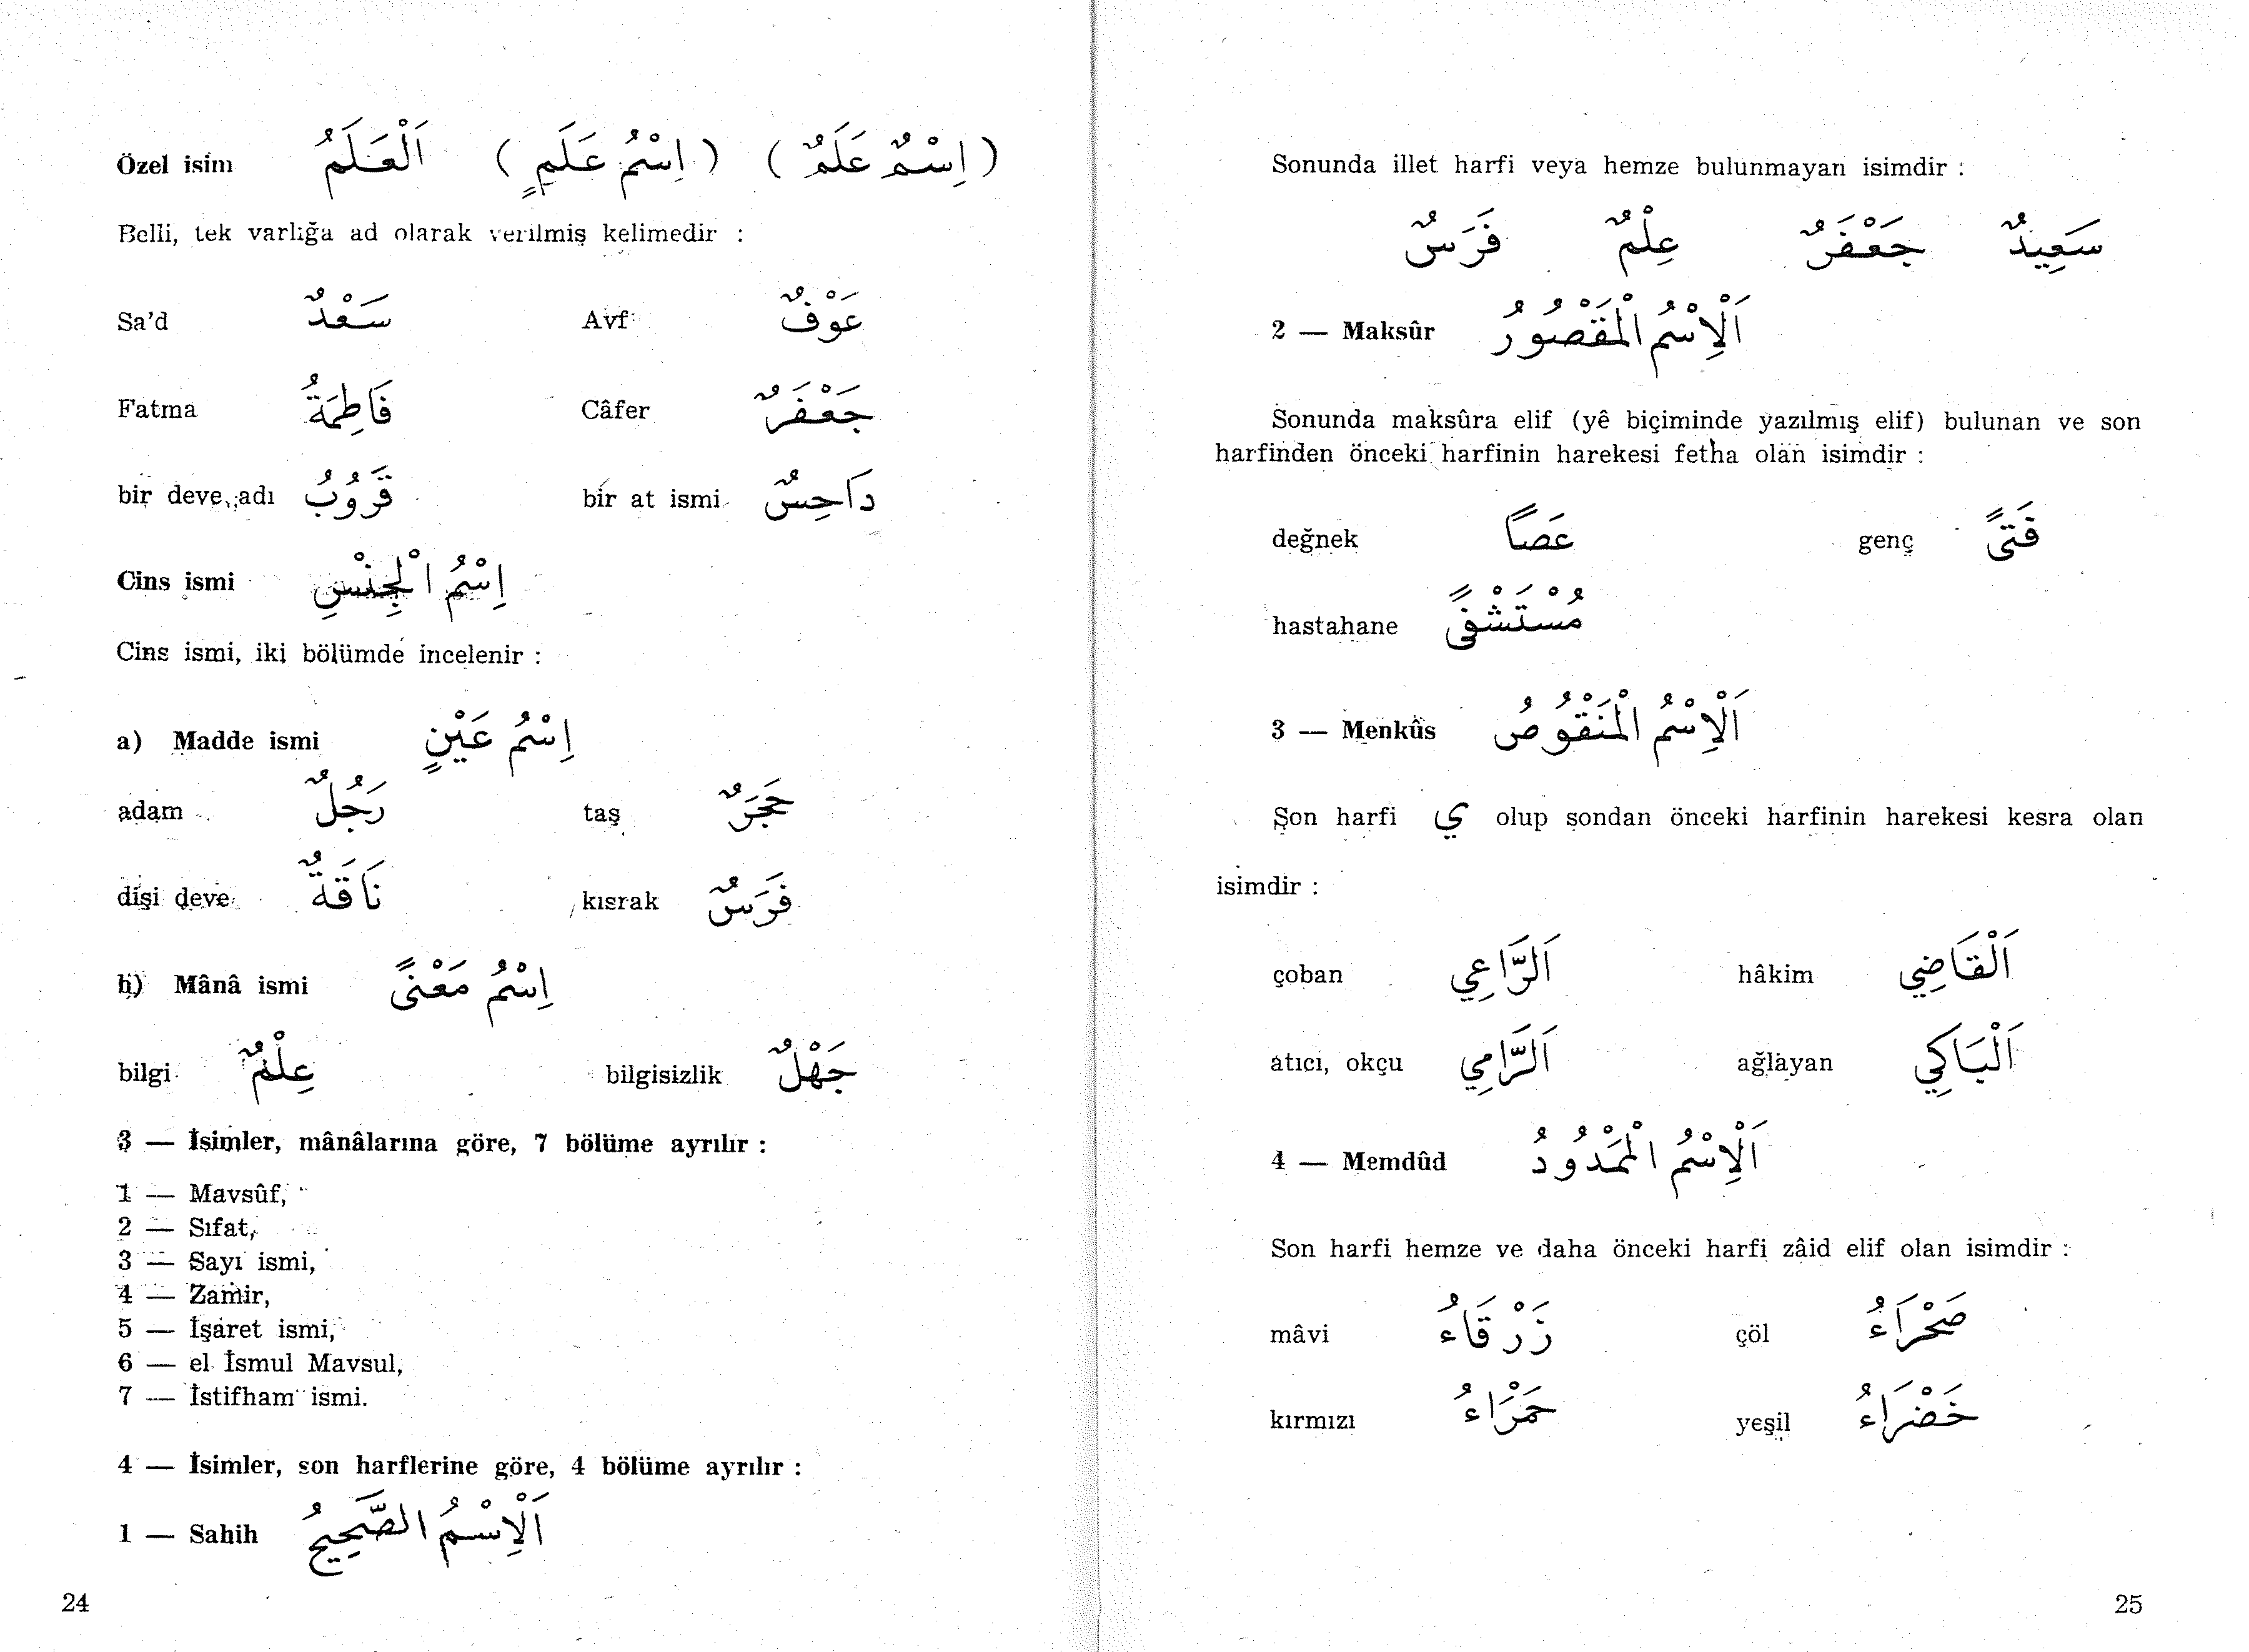 Özel isim اَلْعَلَمُ ( اِسْمُ عَلَمٍ ) ( اِسْمٌ عَلَمٌ )
Belli, tek varlığa ad olarak verilmiş kelimedir :
Sa'd سَعْدٌ Avf عَوْفٌ
Fatma فَاطِمَةُ Câfer جَعْفَرٌ
bir deve adı قَرُوبُ bir at ismi دَاحِسٌ
Cins ismi اِسْمُ الْجِنْسِ
Cins ismi, iki bölümde incelenir :
a) Madde ismi اِسْمُ عَيْنٍ
adam رَجُلٌ taş حَجَرٌ
dişi deve نَاقَةٌ kısrak فَرَسٌ
b) Mânâ ismi اِسْمُ مَعْنًى
bilgi عِلْمٌ bilgisizlik جَهْلٌ
3 — İsimler, mânâlarına göre, 7 bölüme ayrılır :
1 — Mavsûf,
2 — Sıfat,
3 — Sayı ismi,
4 — Zamir,
5 — İşaret ismi,
6 — el İsmul Mavsul,
7 — İstifham ismi.
4 — İsimler, son harflerine göre, 4 bölüme ayrılır :
1 — Sahih اَلْاِسْمُ الصَّحِيحُ
24
Sonunda illet harfi veya hemze bulunmayan isimdir :
سَعِيدٌ جَعْفَرٌ عِلْمٌ فَرَسٌ
2 — Maksûr اَلْاِسْمُ الْمَقْصُورُ
Sonunda maksûra elif (yê biçiminde yazılmış elif) bulunan ve son
harfinden önceki harfinin harekesi fetha olan isimdir :
değnek عَصًا genç فَتًى
hastahane مُسْتَشْفًى
3 — Menkûs اَلْاِسْمُ الْمَنْقُوصُ
Son harfi ي olup sondan önceki harfinin harekesi kesra olan
isimdir :
çoban اَلرَّاعِي hâkim اَلْقَاضِي
atıcı, okçu اَلرَّامِي ağlayan اَلْبَاكِي
4 — Memdûd اَلْاِسْمُ الْمَمْدُودُ
Son harfi hemze ve daha önceki harfi zâid elif olan isimdir :
mâvi زَرْقَاءُ çöl صَحْرَاءُ
kırmızı حَمْرَاءُ yeşil خَضْرَاءُ
25